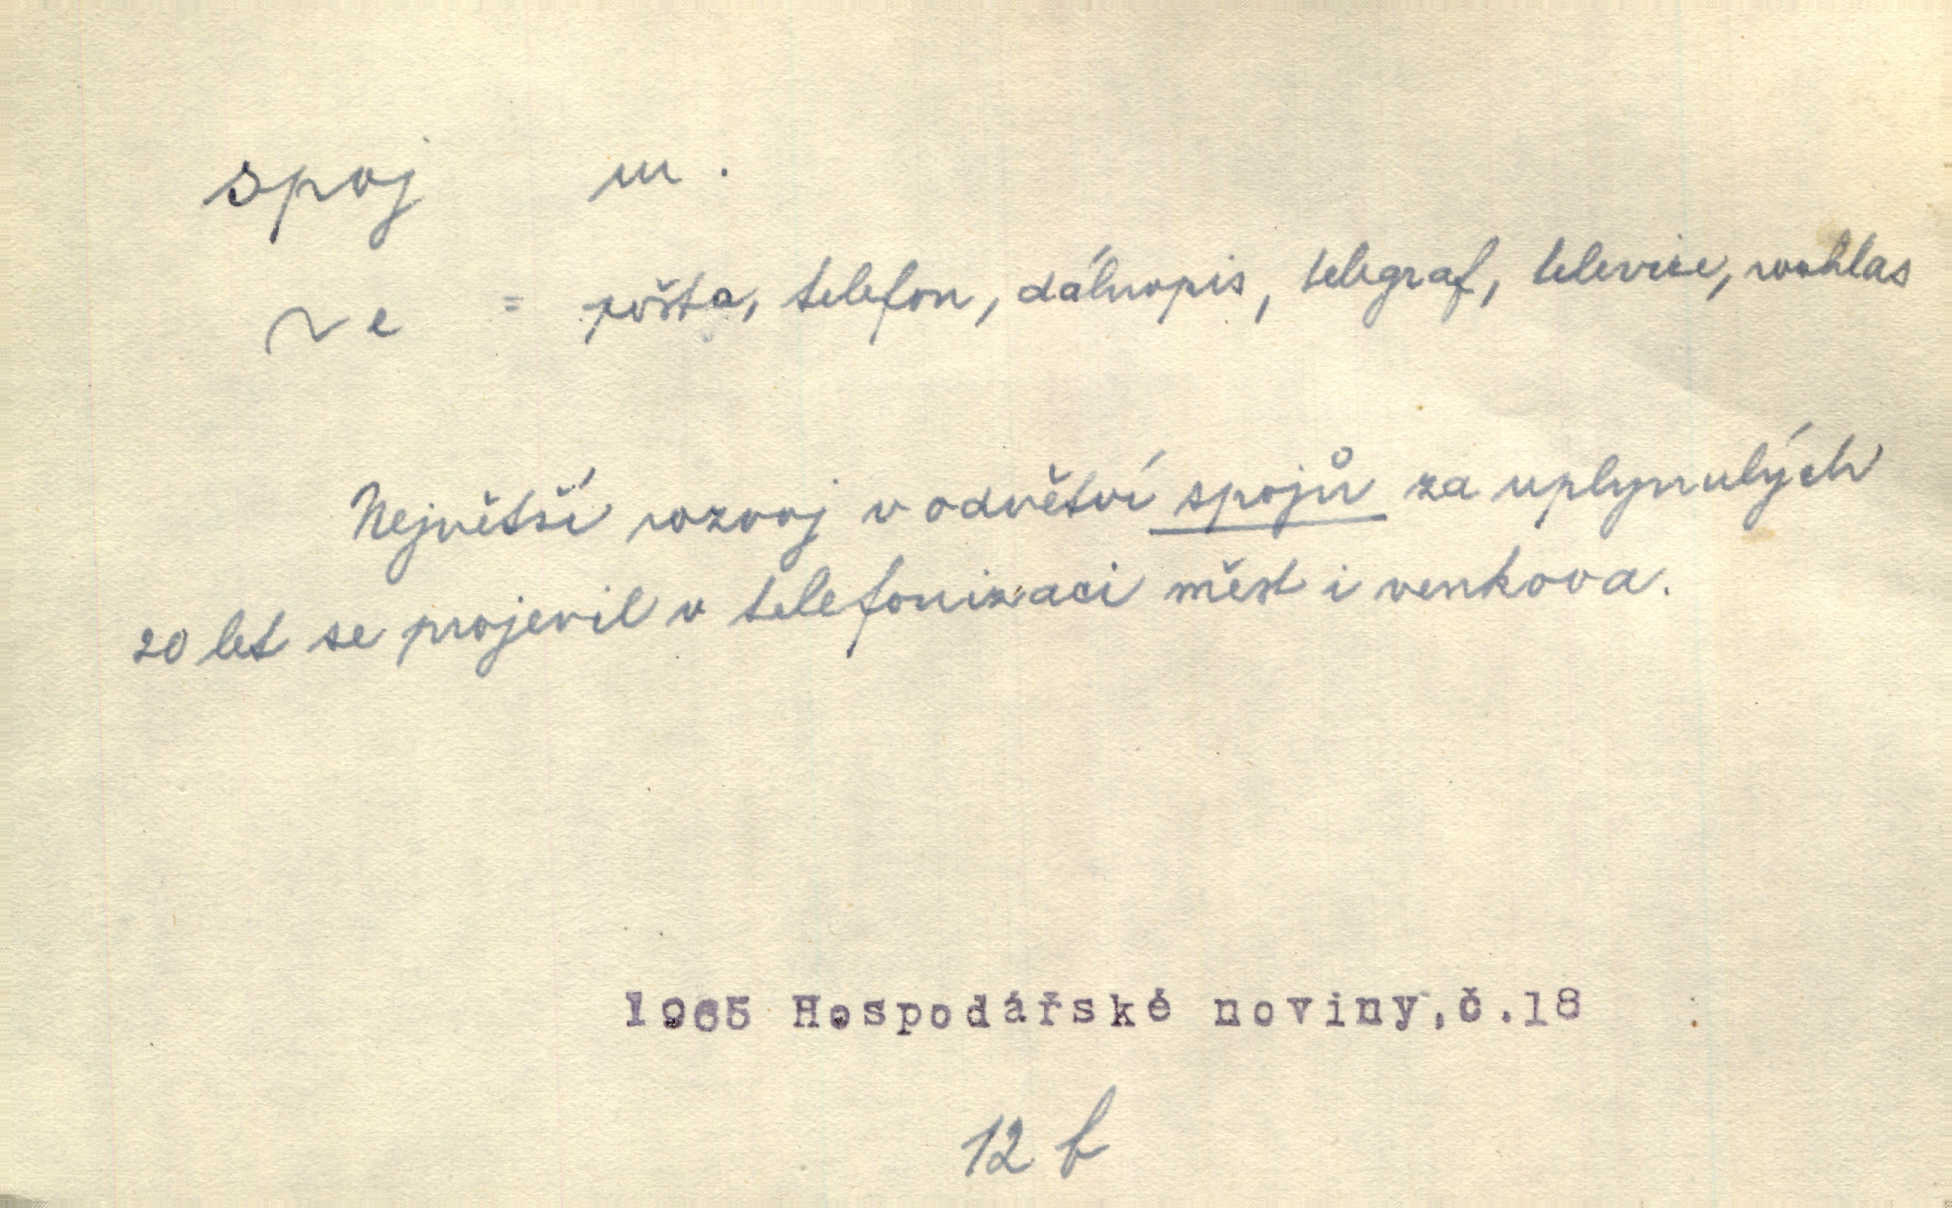 spoj m.
~e = pošta, telefon, dálnopis, telegraf, televize, rozhlas
Největší rozvoj v odvětví spojů za uplynulých
20 let se projevil v telefonizaci měst i venkova.
1965 Hospodářské noviny,č.18
12 b